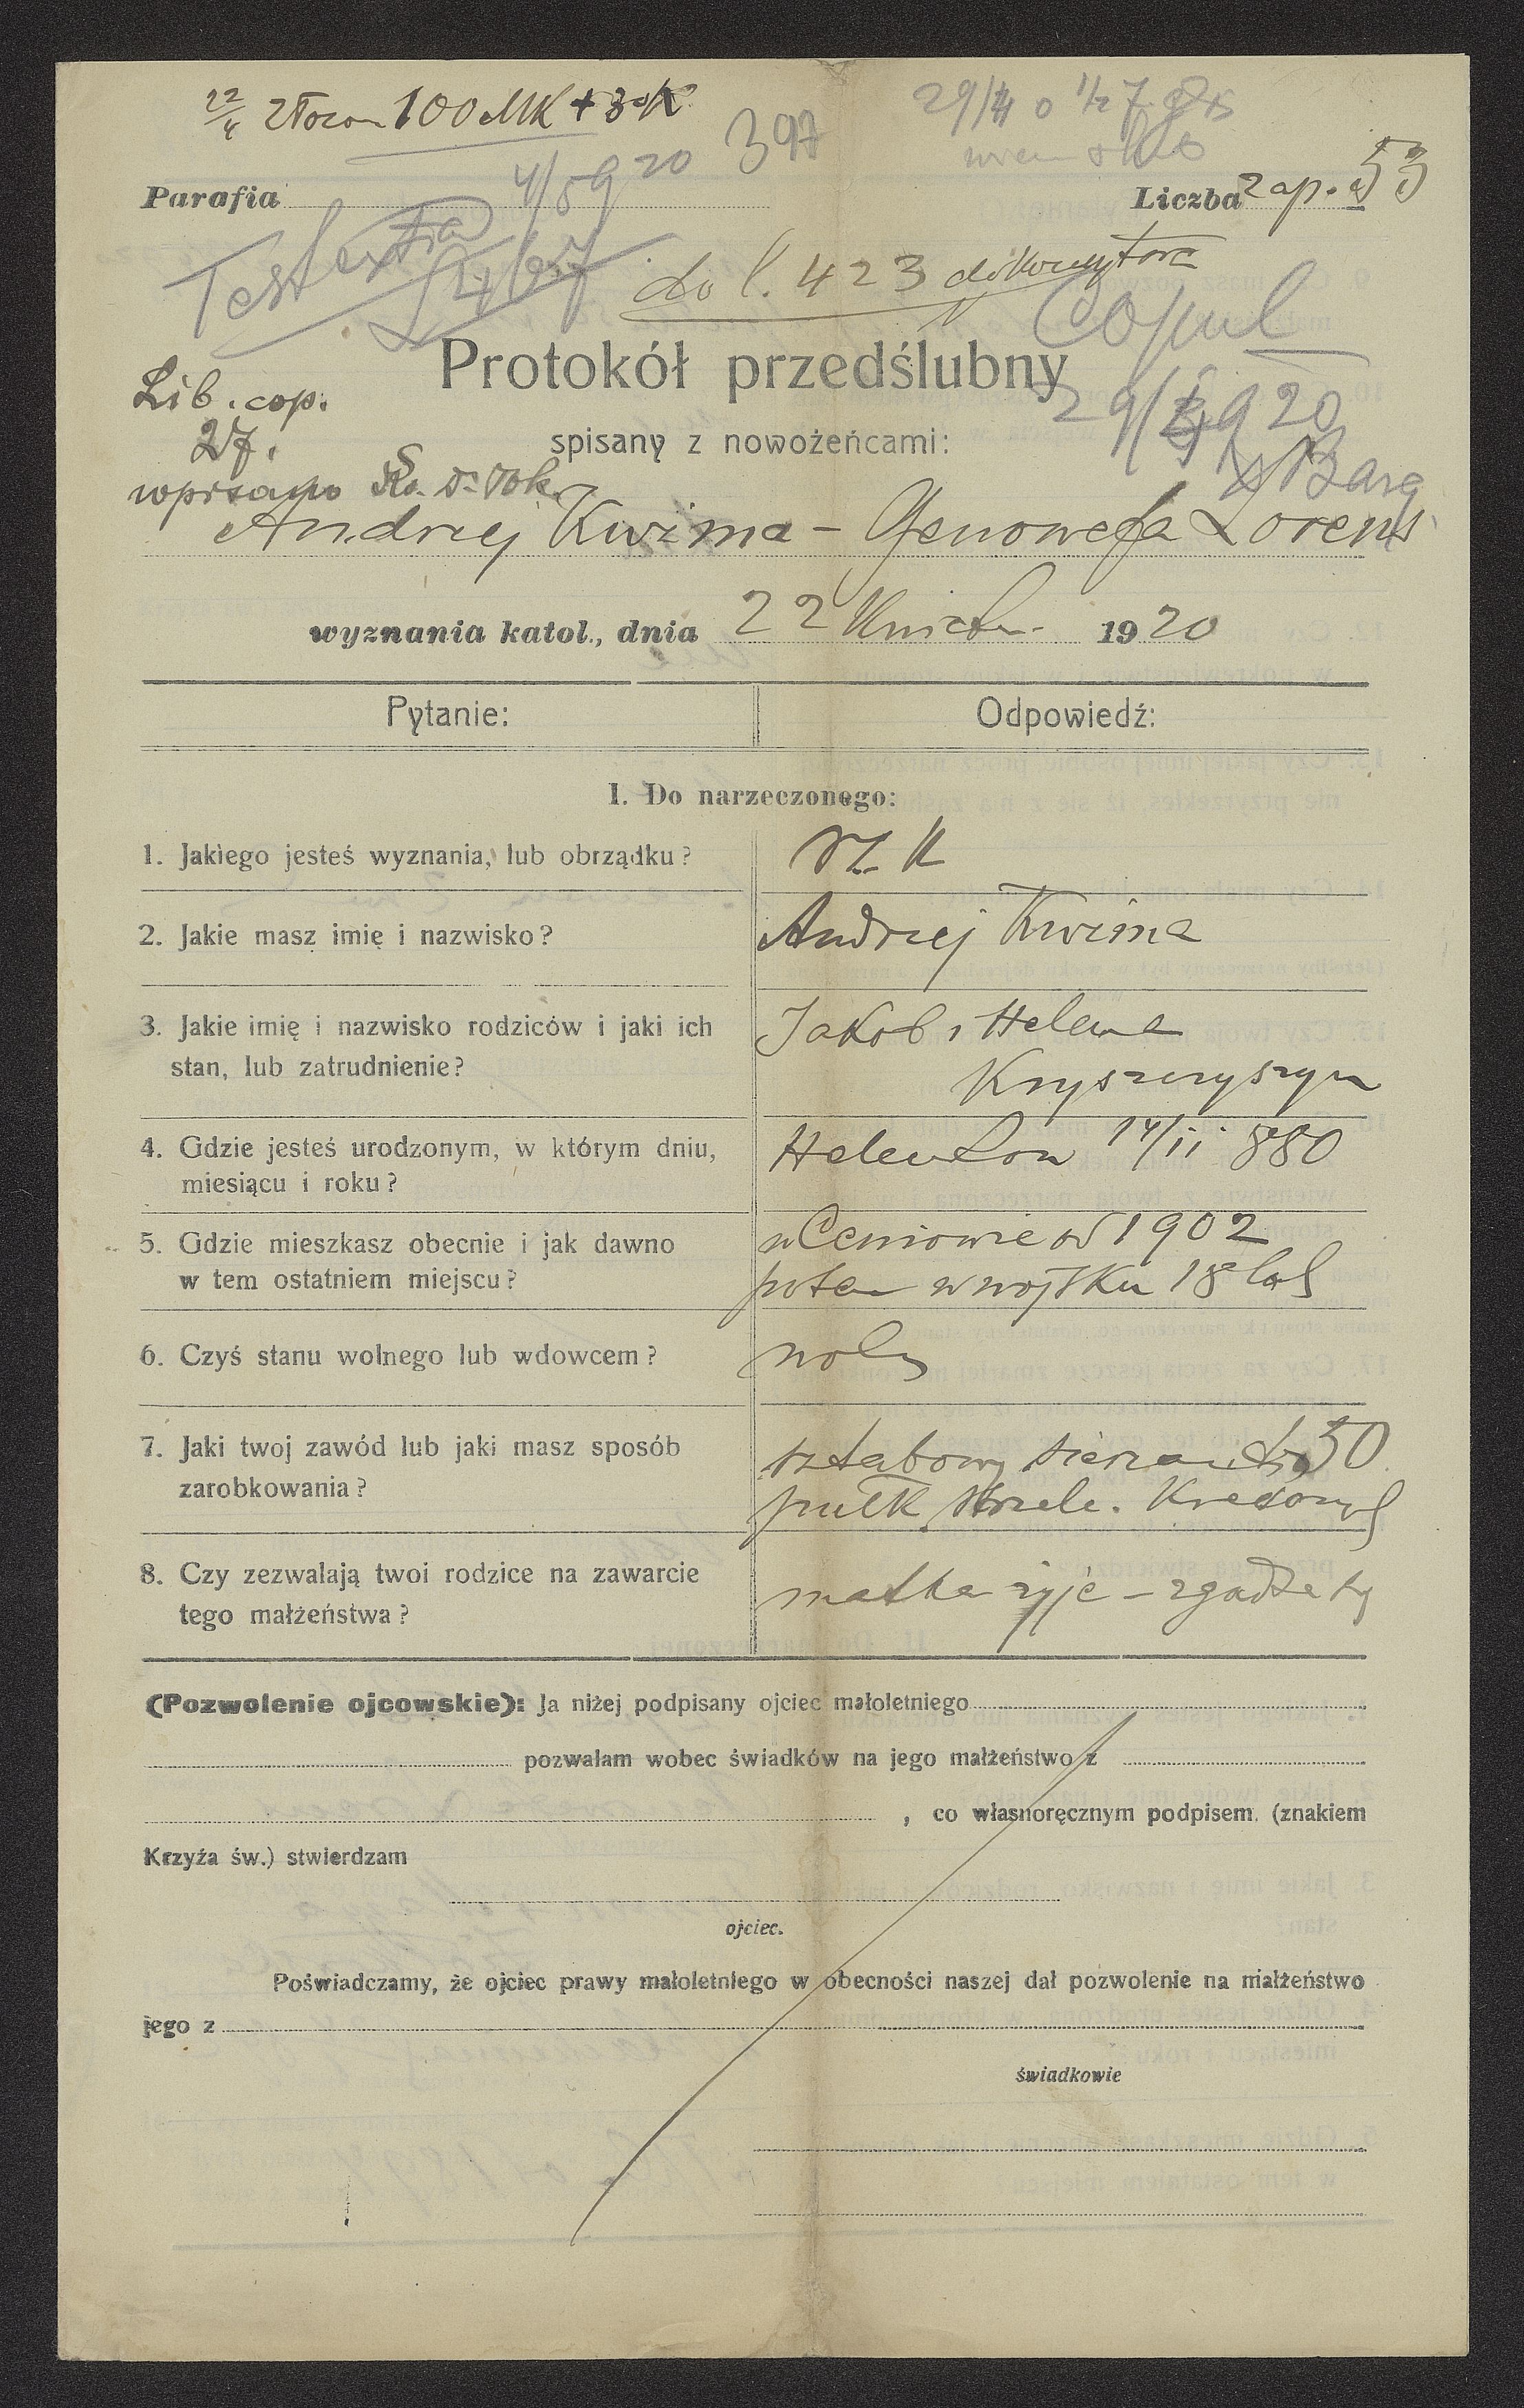 22/4 złożon 100 MK + 30 K
397
29/4 o 1/2 7 g
4/5 920
Parafia
Liczba zap. 53
Test
do l. 423
Copul
Protokół przedślubny
29/4 920
Lib. cop.
27.
spisany z nowożeńcami:
Andrzej Kwima – Genowefa Lorens
wyznania katol., dnia 22 Kwietn. 1920
Pytanie: Odpowiedź:
I. Do narzeczonego:
1. Jakiego jesteś wyznania, lub obrządku? rz. k
2. Jakie masz imię i nazwisko? Andrzej Kwima
3. Jakie imię i nazwisko rodziców i jaki ich Jakob i Helena
stan, lub zatrudnienie? Kryszczyszyn
4. Gdzie jesteś urodzonym, w którym dniu, 14/11 880
miesiącu i roku?
5. Gdzie mieszkasz obecnie i jak dawno w Ceniowie od 1902
w tem ostatniem miejscu? potem w wojsku 18 lat
6. Czyś stanu wolnego lub wdowcem? wolny
7. Jaki twoj zawód lub jaki masz sposób sztabowy sierzant 50
zarobkowania? pułk Strzelc. Kresowych
8. Czy zezwalają twoi rodzice na zawarcie matka żyje – zgadza się
tego małżeństwa?
(Pozwolenie ojcowskie): Ja niżej podpisany ojciec małoletniego
pozwalam wobec świadków na jego małżeństwo z
, co własnoręcznym podpisem (znakiem
Krzyża św.) stwierdzam
ojciec.
Poświadczamy, że ojciec prawy małoletniego w obecności naszej dał pozwolenie na małżeństwo
jego z
świadkowie